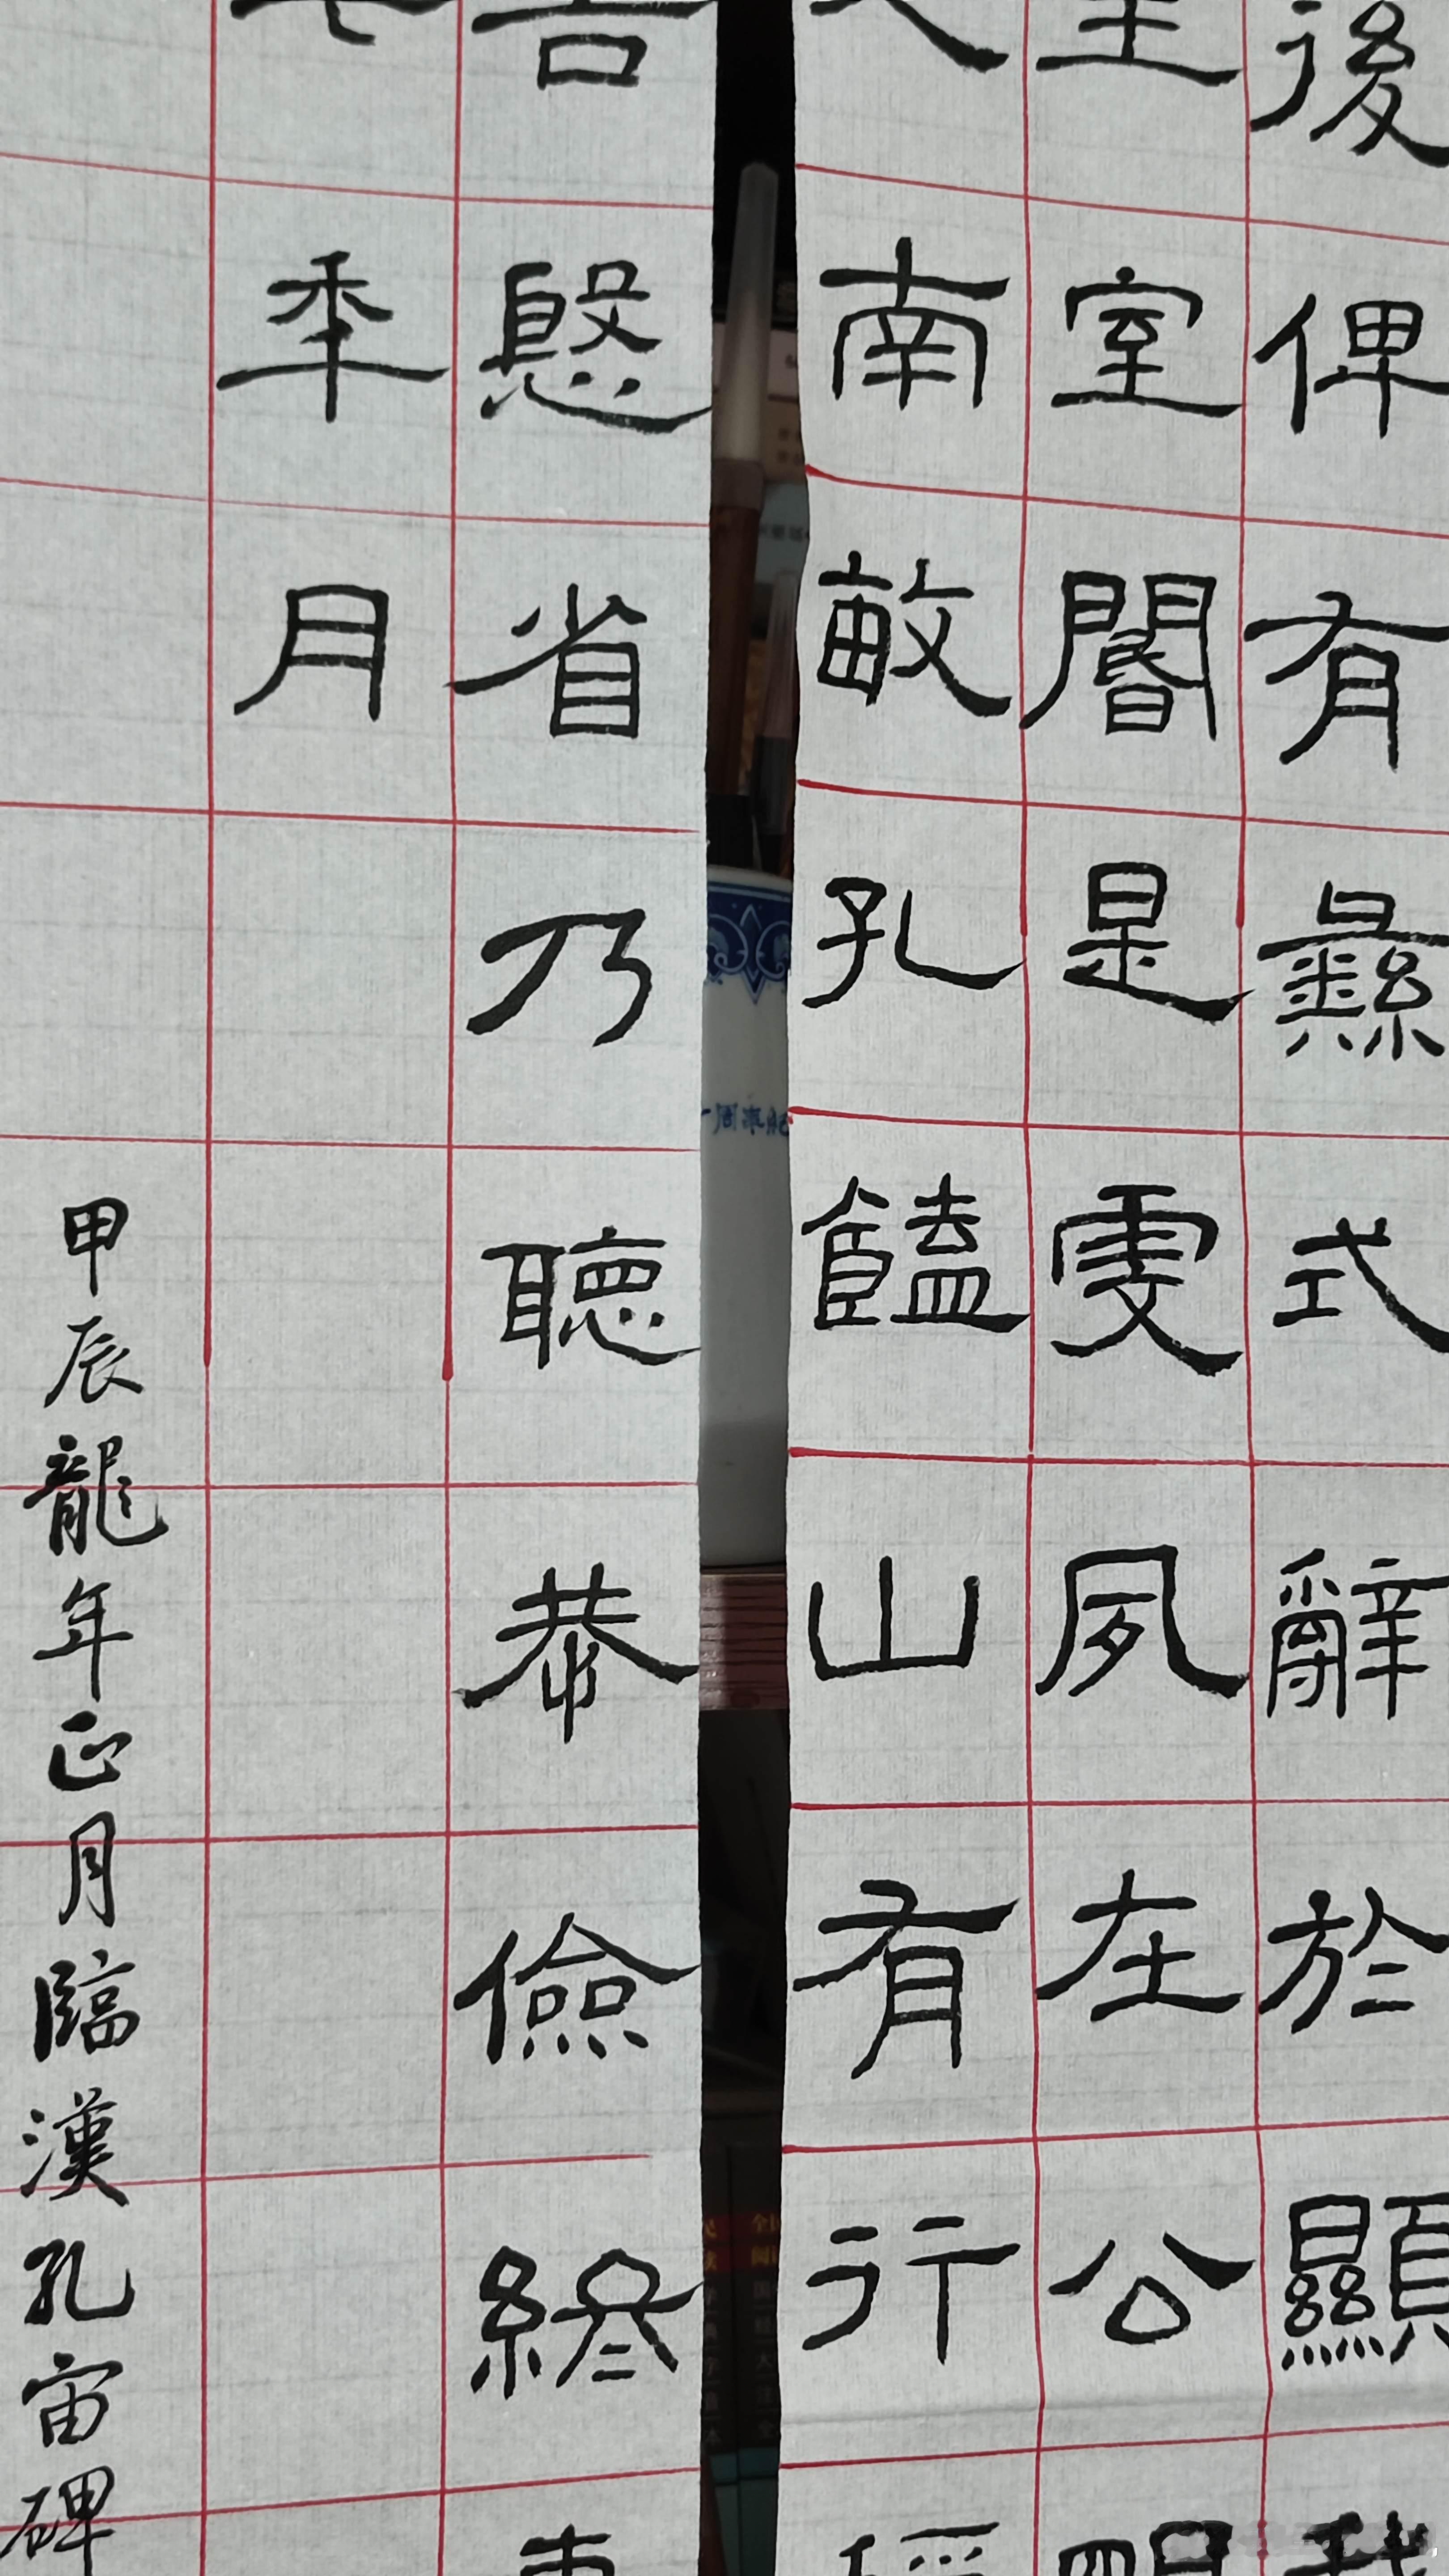 後俾有彝式辭於顯
室閽是虔夙在公
南畝孔饁山有行
慇省乃聽恭儉終
年月
甲辰龍年正月臨漢孔宙碑